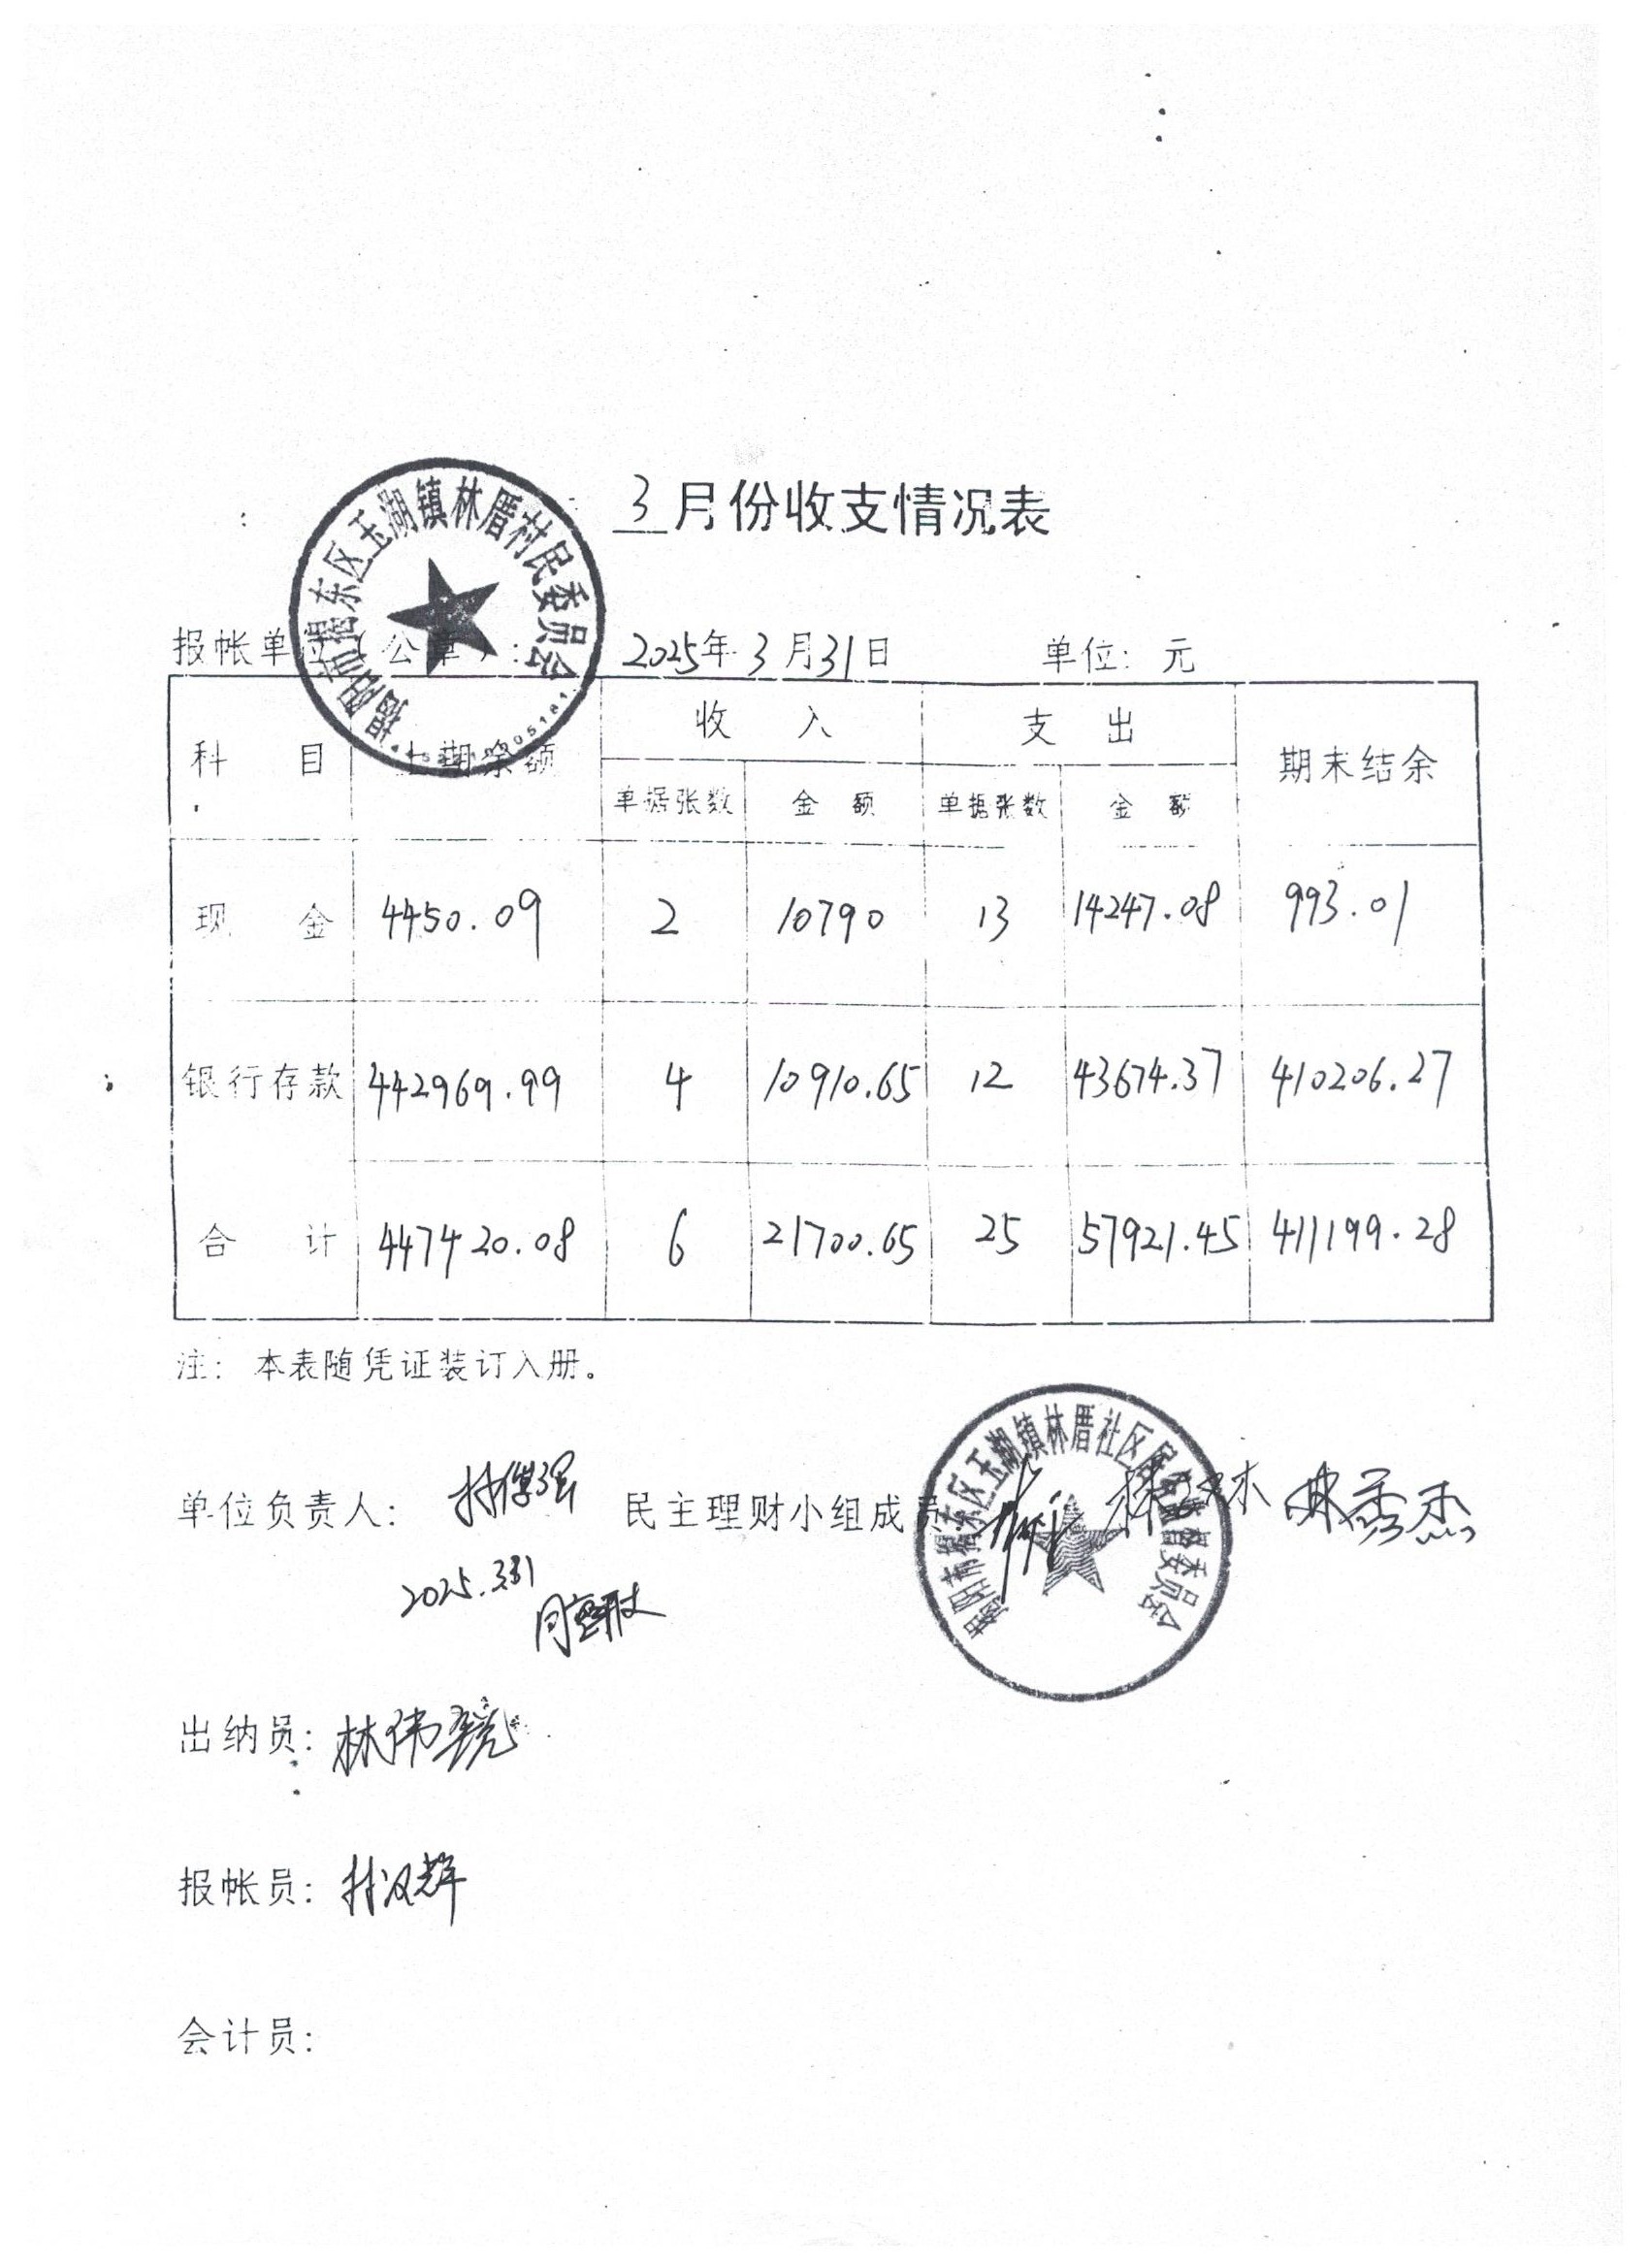 3月份收支情况表
揭阳市揭东区玉湖镇林厝村民委员会
报帐单位(公章): 2025年3月31日 单位: 元
科目 上期余额 收入 支出 期末结余
单据张数 金额 单据张数 金额
现金 4450.09 2 10790 13 14247.08 993.01
银行存款 442969.99 4 10910.65 12 43674.37 410206.27
合计 447420.08 6 21700.65 25 57921.45 411199.28
注: 本表随凭证装订入册。
揭阳市揭东区玉湖镇林厝社区居务监督委员会
单位负责人: 民主理财小组成员
2025.3.31
出纳员: 林伟
报帐员: 林汉辉
会计员: